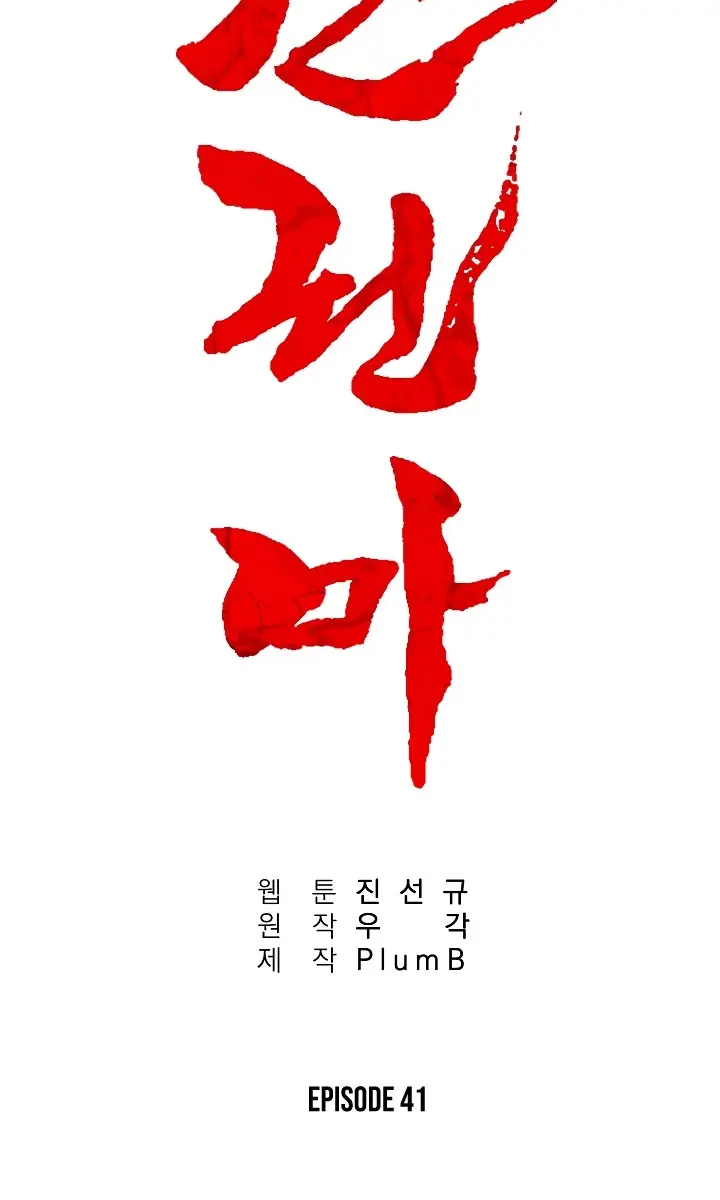 권
마
웹 툰 진 선 규
원 작 우 각
제 작 PlumB
EPISODE 41